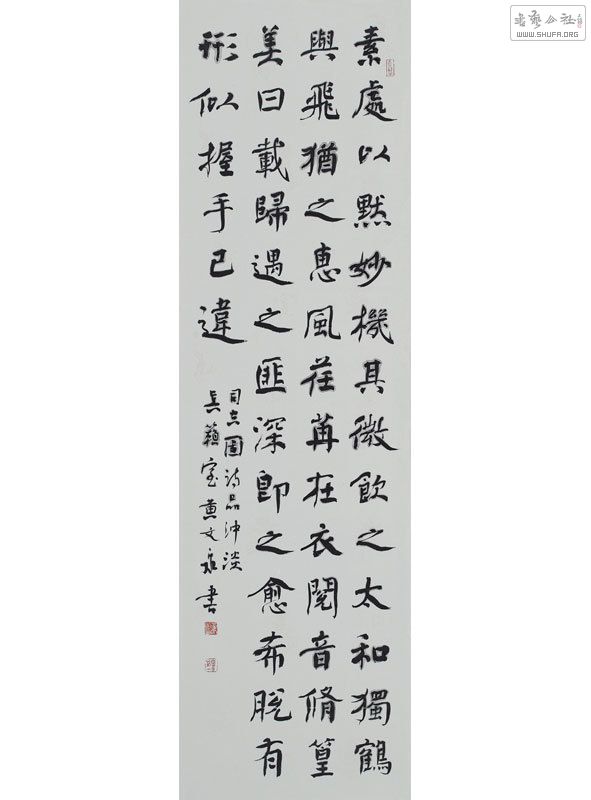 素處以默妙機其微飲之太和獨鶴
與飛猶之惠風荏苒在衣閱音脩篁
美曰載歸遇之匪深即之愈希脫有
形似握手已違
司空圖詩品沖淡
室黄文泉書
書藝公社
WWW.SHUFA.ORG